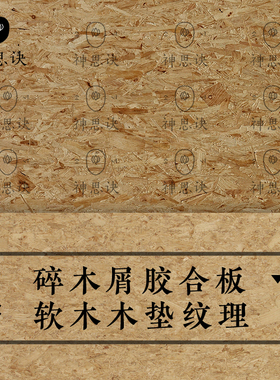 思诀
神思诀 神思诀 神思诀
神思诀 神思诀 神思诀
碎木屑胶合板
软木木垫纹理